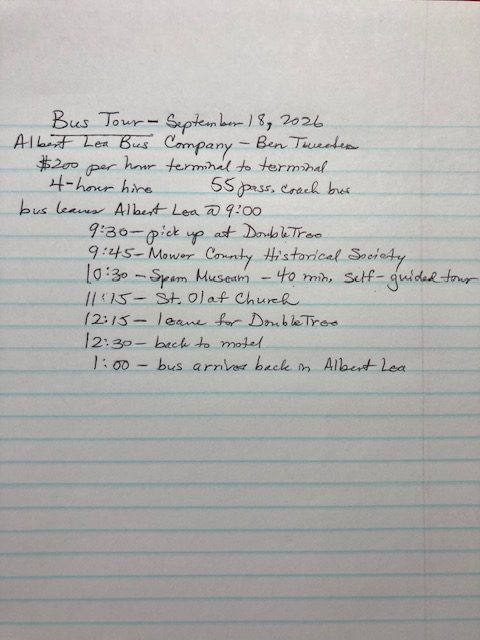 Bus Tour - September 18, 2026
Albert Lea Bus Company - Ben Tweeten
$200 per hour terminal to terminal
4-hour hire 55 pass. coach bus
bus leaves Albert Lea @ 9:00
9:30 - pick up at DoubleTree
9:45 - Mower County Historical Society
10:30 - Spam Museum - 40 min. self-guided tour
11:15 - St. Olaf Church
12:15 - leave for DoubleTree
12:30 - back to motel
1:00 - bus arrives back in Albert Lea